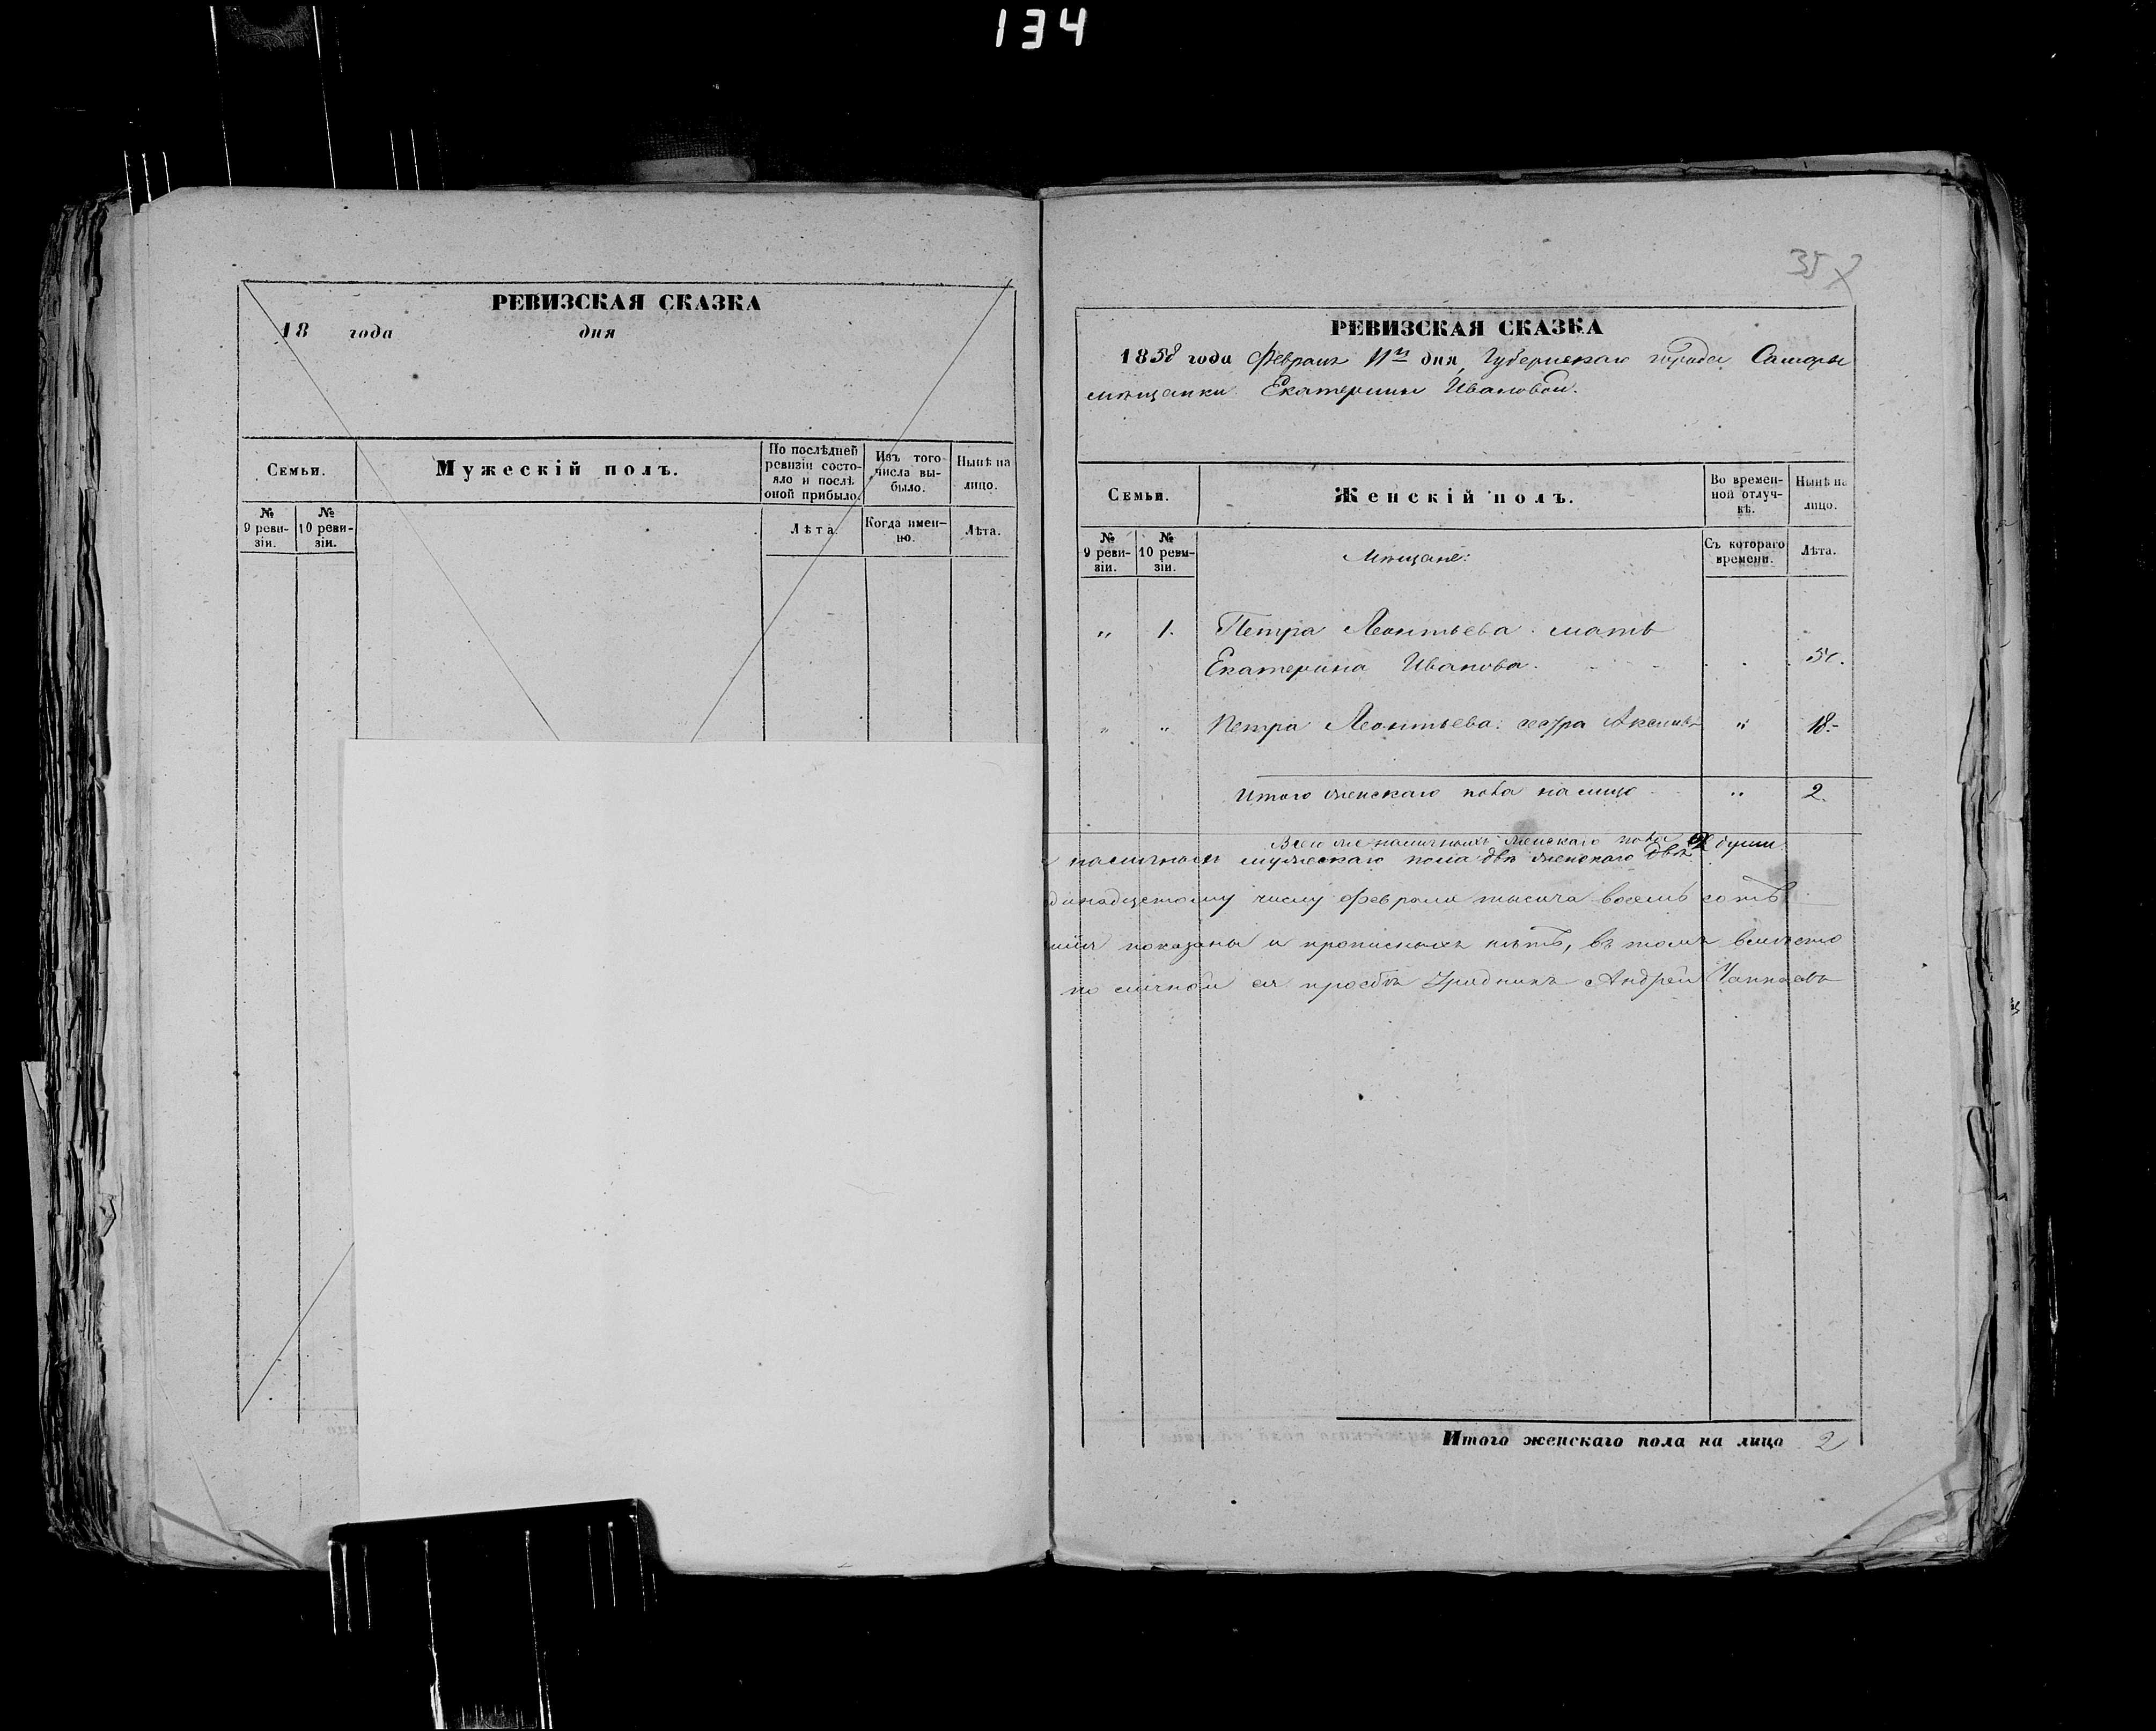 134
РЕВИЗСКАЯ СКАЗКА
18 года дня
Семьи.
Мужескій полъ.
По послѣдней ревизіи состояло и послѣ оной прибыло.
Изъ того числа выбыло.
Нынѣ на лицо.
№ 9 ревизіи.
№ 10 ревизіи.
Лѣта.
Когда именно.
Лѣта.
35
РЕВИЗСКАЯ СКАЗКА
1858 года Февраля 11го дня, Губернскаго города Самары
мѣщанки Екатерины Ивановой.
Семьи.
Женскій полъ.
Во временной отлучкѣ.
Нынѣ на лицо.
№ 9 ревизіи.
№ 10 ревизіи.
Мѣщане:
Съ котораго времени.
Лѣта.
„ 1. Петра Леонтьева мать
Екатерина Иванова.
„ „ Петра Леонтьева: сестра „ 18.
Итого женскаго пола на лицо „ 2.
Всего же наличныхъ женскаго пола души
наличныхъ мужескаго пола двѣ женскаго двѣ
динадцатому числу февраля тысяча восемь сотъ
показаны и прописныхъ нѣтъ, въ томъ вмѣсто
по личной ея просьбѣ Урядникъ Андрей
Итого женскаго пола на лицо 2